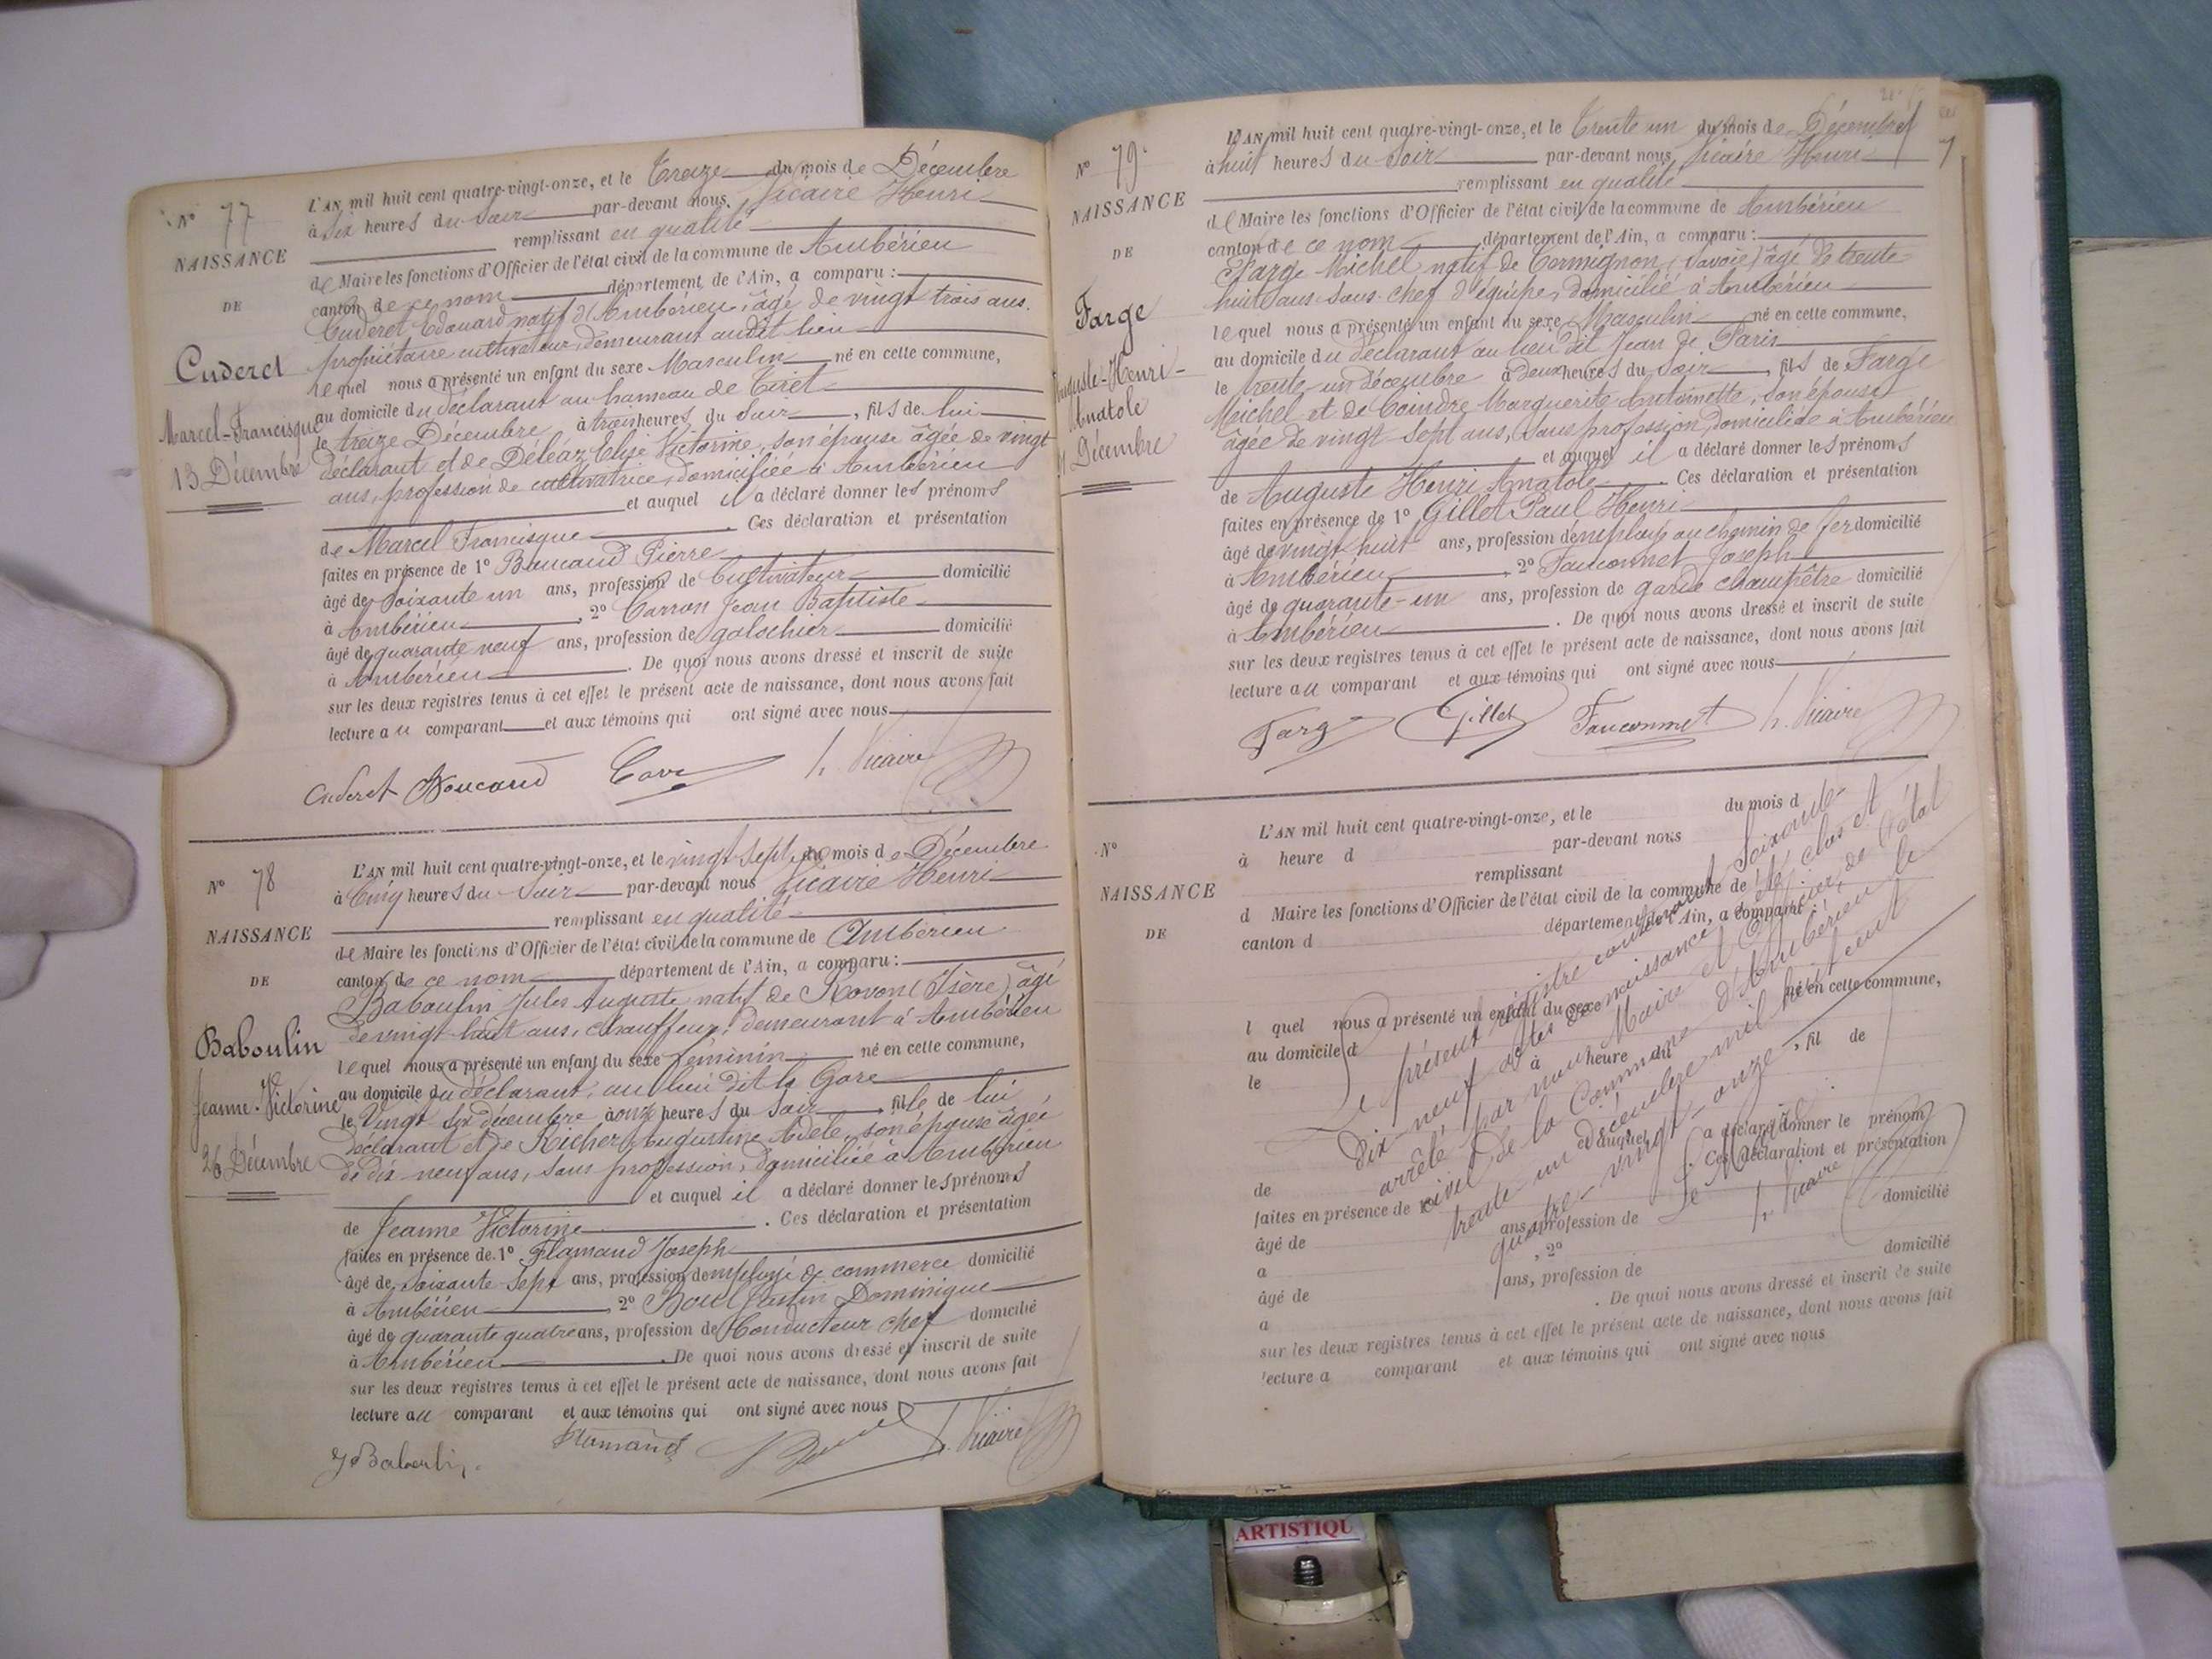 N° 77
NAISSANCE
DE
Cuderet
Marcel-Francisque
13 Décembre
L'AN mil huit cent quatre-vingt-onze, et le Treize du mois de Décembre
à six heures du soir par-devant nous, Vicaire Henri
remplissant en qualité
de Maire les fonctions d'Officier de l'état civil de la commune de Ambérieu
canton de ce nom département de l'Ain, a comparu :
Cuderet Edouard natif d'Ambérieu, âgé de vingt trois ans.
propriétaire cultivateur, demeurant audit lieu
lequel nous a présenté un enfant du sexe Masculin né en cette commune,
au domicile du déclarant au hameau de Tiret
le treize Décembre à trois heures du soir, fils de lui
déclarant et de Déléaz Elise Victorine, son épouse âgée de vingt
ans, profession de cultivatrice, domiciliée à Ambérieu
et auquel il a déclaré donner les prénoms
de Marcel Francisque. Ces déclaration et présentation
faites en présence de 1° Boucand Pierre
âgé de soixante un ans, profession de Cultivateur domicilié
à Ambérieu, 2° Carron Jean Baptiste
âgé de quarante neuf ans, profession de galochier domicilié
à Ambérieu. De quoi nous avons dressé et inscrit de suite
sur les deux registres tenus à cet effet le présent acte de naissance, dont nous avons fait
lecture au comparant et aux témoins qui ont signé avec nous
Cuderet Boucand h. Vicaire
N° 78
NAISSANCE
DE
Baboulin
Jeanne-Victorine
26 Décembre
L'AN mil huit cent quatre-vingt-onze, et le vingt sept du mois de Décembre
à Cinq heures du soir par-devant nous Vicaire Henri
remplissant en qualité
de Maire les fonctions d'Officier de l'état civil de la commune de Ambérieu
canton de ce nom département de l'Ain, a comparu :
Baboulin Jules Auguste natif de Rovon (Isère) âgé
de vingt-huit ans, chauffeur, demeurant à Ambérieu
lequel nous a présenté un enfant du sexe féminin né en cette commune,
au domicile du déclarant, au lieu dit la Gare
le Vingt six décembre à onze heures du soir, fille de lui
déclarant et de Richer Augustine Adèle, son épouse âgée
de dix neuf ans, sans profession, domiciliée à Ambérieu
et auquel il a déclaré donner les prénoms
de Jeanne Victorine. Ces déclaration et présentation
faites en présence de 1° Flamand Joseph
âgé de soixante sept ans, profession d'employé de commerce domicilié
à Ambérieu, 2° Dominique
âgé de quarante quatre ans, profession de Conducteur chef domicilié
à Ambérieu. De quoi nous avons dressé et inscrit de suite
sur les deux registres tenus à cet effet le présent acte de naissance, dont nous avons fait
lecture au comparant et aux témoins qui ont signé avec nous
J Baboulin Flamand h. Vicaire
N° 79
NAISSANCE
DE
Farge
Auguste-Henri-
Anatole
31 Décembre
L'AN mil huit cent quatre-vingt-onze, et le Trente un du mois de Décembre
à huit heures du soir par-devant nous Vicaire Henri
remplissant en qualité
de Maire les fonctions d'Officier de l'état civil de la commune de Ambérieu
canton de ce nom département de l'Ain, a comparu :
Farge Michel natif de Termignon (Savoie) âgé de trente-
huit ans sous-chef d'équipe, domicilié à Ambérieu
lequel nous a présenté un enfant du sexe Masculin né en cette commune,
au domicile du déclarant au lieu dit Jean de Paris
le trente-un décembre à deux heures du soir, fils de Farge
Michel et de Coindre Marguerite Antoinette, son épouse
âgée de vingt-sept ans, sans profession, domiciliée à Ambérieu
et auquel il a déclaré donner les prénoms
de Auguste Henri Anatole. Ces déclaration et présentation
faites en présence de 1° Gillet Paul Henri
âgé de vingt huit ans, profession d'employé au chemin de fer domicilié
à Ambérieu, 2° Fauconnet Joseph
âgé de quarante-un ans, profession de garde champêtre domicilié
à Ambérieu. De quoi nous avons dressé et inscrit de suite
sur les deux registres tenus à cet effet le présent acte de naissance, dont nous avons fait
lecture au comparant et aux témoins qui ont signé avec nous
Farge Gillet Fauconnet h. Vicaire
N°
NAISSANCE
DE
L'AN mil huit cent quatre-vingt-onze, et le du mois d
à heure d par-devant nous
remplissant
d Maire les fonctions d'Officier de l'état civil de la commune de
canton d département de l'Ain, a comparu :
l quel nous a présenté un enfant du sexe né en cette commune,
au domicile d
le à heure du, fil de
et auquel a déclaré donner le prénom
de. Ces déclaration et présentation
faites en présence de 1°
âgé de ans, profession de domicilié
a, 2°
âgé de ans, profession de domicilié
a. De quoi nous avons dressé et inscrit de suite
sur les deux registres tenus à cet effet le présent acte de naissance, dont nous avons fait
lecture a comparant et aux témoins qui ont signé avec nous
Le présent registre contenant Soixante-
Dix-neuf actes de naissance a été clos et
arrêté par nous Maire et Officier de l'état
civil de la Commune d'Ambérieu le
trente un décembre mil huit cent
quatre-vingt-onze
Le Maire
h. Vicaire
ARTISTIQU